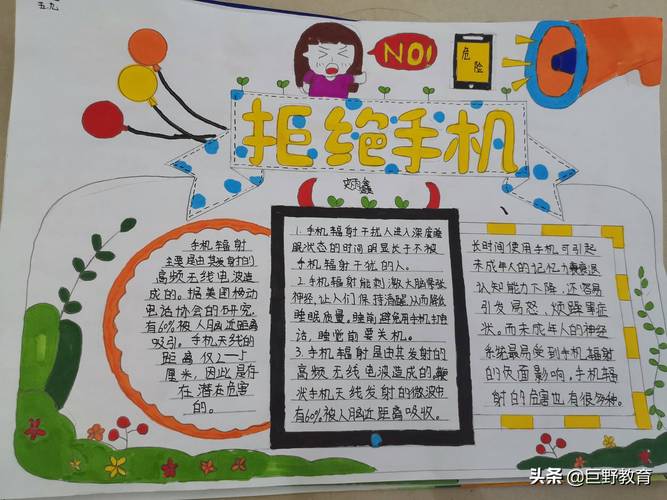 五.九
NO!
危险
拒绝手机
手机辐射
主要是由其发射的
高频无线电波造
成的。据美国移动
电话协会的研究,
有60%被人脑近距离
吸引。手机天线的
距离仅2一5
厘米,因此是存
在潜在危害
的。
1.手机辐射干扰人进入深度睡
眠状态的时间明显长于不被
手机辐射干扰的人。
2.手机辐射能刺激大脑紧张
神经,让人们保持清醒从而降低
睡眠质量。睡前避免用手机打电
话,睡觉前要关机。
3.手机辐射是由其发射的
高频无线电波造成的。
状手机天线发射的微波中
有60%被人脑近距离吸收。
长时间使用手机可引起
未成年人的记忆力衰退
认知能力下降,还容易
引发局怒、烦躁等症
状。而未成年人的神经
系统最易受到手机辐射
的负面影响。手机辐
射的危害也有很多种。
头条@巨野教育